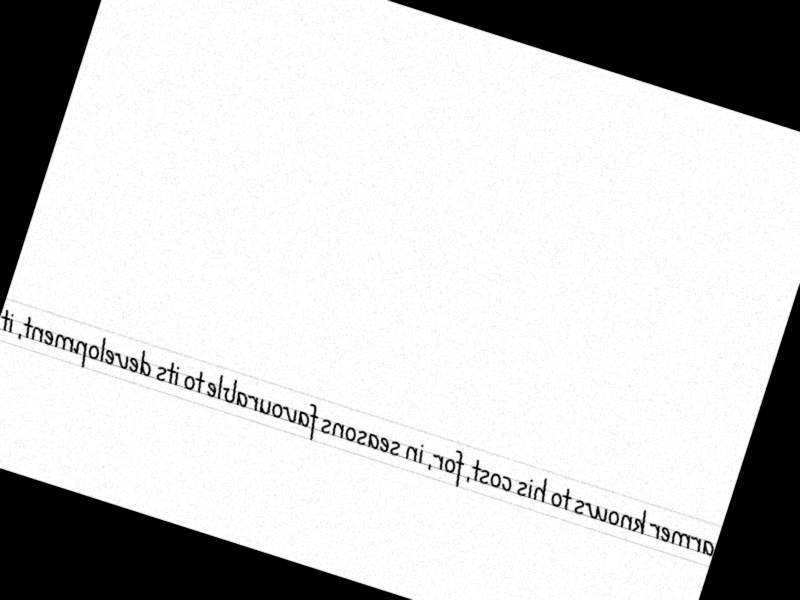 armer knows to his cost, for, in seasons favourable to its development, it